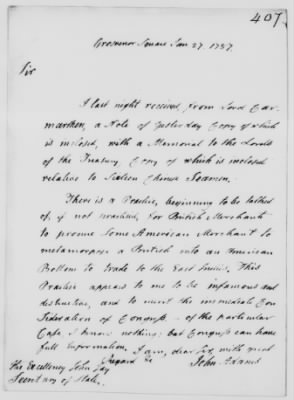 407.
Grosvenor Square Jan 27. 1787.
Sir
I last night received, from Lord Car-
marthen, a Note of yesterday Copy of which
is inclosed, with a Memorial to the Lords
of the Treasury Copy of which is inclosed
relative to Sixteen Chinese Seamen.
There is a Practice, beginning to be talked
of, if not practised, for British Merchants
to procure Some American Merchant to
metamorphose a British into an American
Bottom to trade to the East Indies. This
Practice appears to me to be infamous and
destructive, and to merit the immediate Con-
sideration of Congress - of the particular
Case, I know nothing: but Congress can have
full Information. I am, dear Sir, with great
Regard &c
John Adams
His Excellency John Jay
Secretary of State.